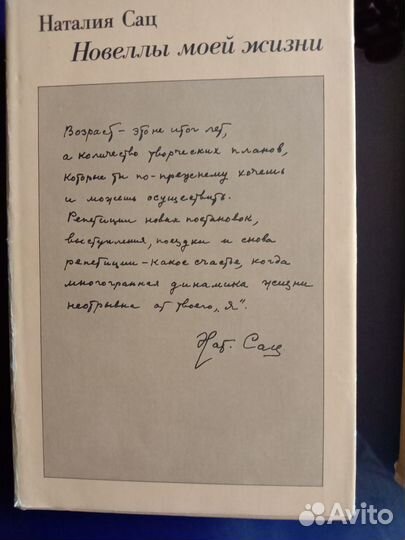 Наталия Сац
Новеллы моей жизни
Возраст – это не итог лет,
а количество творческих планов,
которые ты по-прежнему хочешь
и можешь осуществить.
Репетиции новых постановок,
выступления, поездки и снова
репетиции – какое счастье, когда
многогранная динамика жизни
неотрывна от твоего „Я".
Нат. Сац
Avito